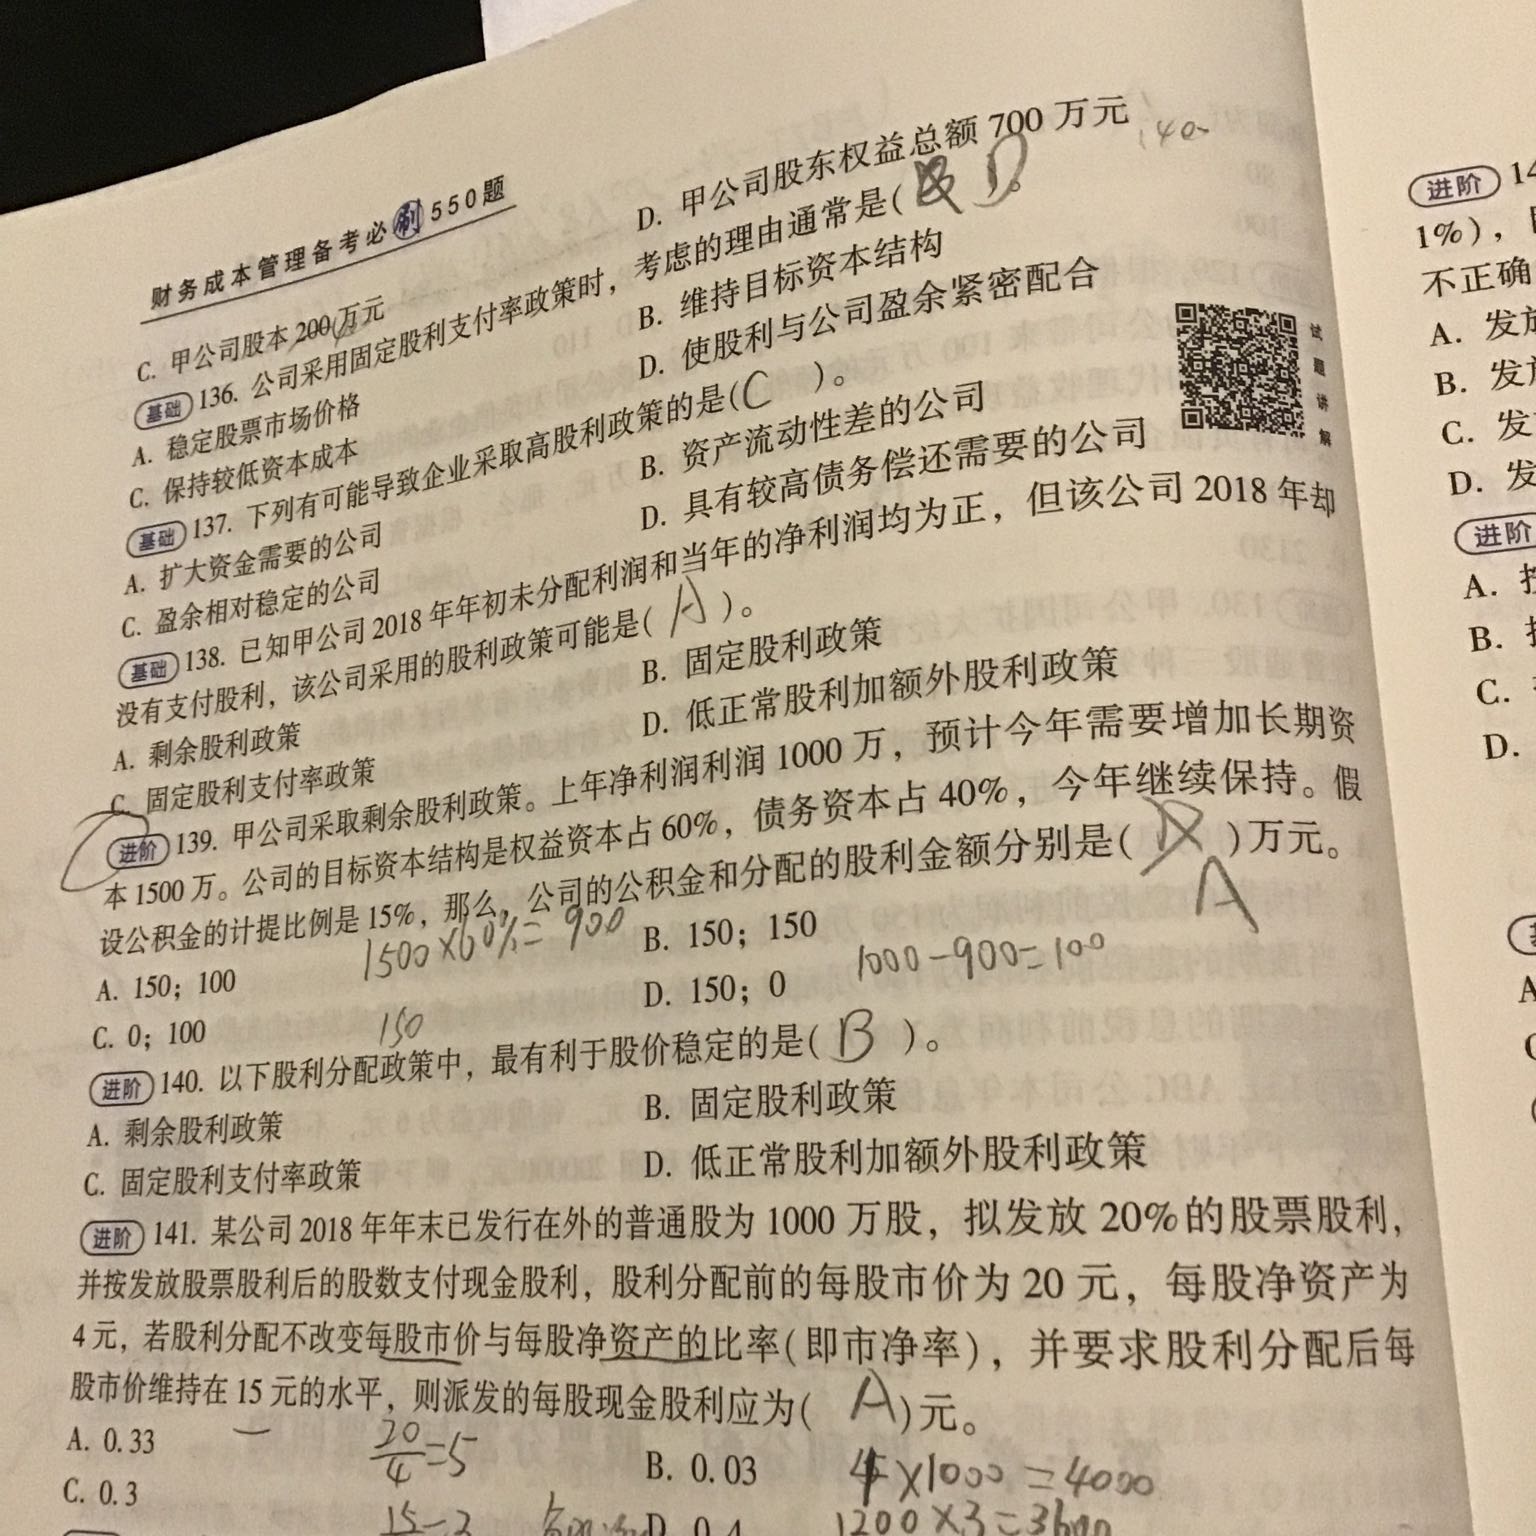 财务成本管理备考必刷550题
C. 甲公司股本 200 万元
D. 甲公司股东权益总额 700 万元
140
基础 136. 公司采用固定股利支付率政策时，考虑的理由通常是( D )。
A. 稳定股票市场价格
B. 维持目标资本结构
C. 保持较低资本成本
D. 使股利与公司盈余紧密配合
基础 137. 下列有可能导致企业采取高股利政策的是( C )。
A. 扩大资金需要的公司
B. 资产流动性差的公司
C. 盈余相对稳定的公司
D. 具有较高债务偿还需要的公司
试题讲解
基础 138. 已知甲公司 2018 年年初未分配利润和当年的净利润均为正，但该公司 2018 年却
没有支付股利，该公司采用的股利政策可能是( A )。
A. 剩余股利政策
B. 固定股利政策
C. 固定股利支付率政策
D. 低正常股利加额外股利政策
进阶 139. 甲公司采取剩余股利政策。上年净利润利润 1000 万，预计今年需要增加长期资
本 1500 万。公司的目标资本结构是权益资本占 60%，债务资本占 40%，今年继续保持。假
设公积金的计提比例是 15%，那么，公司的公积金和分配的股利金额分别是( )万元。
A
1500×60%=900
A. 150；100
B. 150；150
1000-900=100
C. 0；100
D. 150；0
150
进阶 140. 以下股利分配政策中，最有利于股价稳定的是( B )。
A. 剩余股利政策
B. 固定股利政策
C. 固定股利支付率政策
D. 低正常股利加额外股利政策
进阶 141. 某公司 2018 年年末已发行在外的普通股为 1000 万股，拟发放 20%的股票股利，
并按发放股票股利后的股数支付现金股利，股利分配前的每股市价为 20 元，每股净资产为
4 元，若股利分配不改变每股市价与每股净资产的比率(即市净率)，并要求股利分配后每
股市价维持在 15 元的水平，则派发的每股现金股利应为( A )元。
A. 0.33
20/4=5
B. 0.03
4×1000=4000
C. 0.3
D. 0.4
1200×3=3600
进阶 14
1%)，
不正确
A. 发放
B. 发放
C. 发
D. 发
进阶
A. 按
B.
C.
D.
A